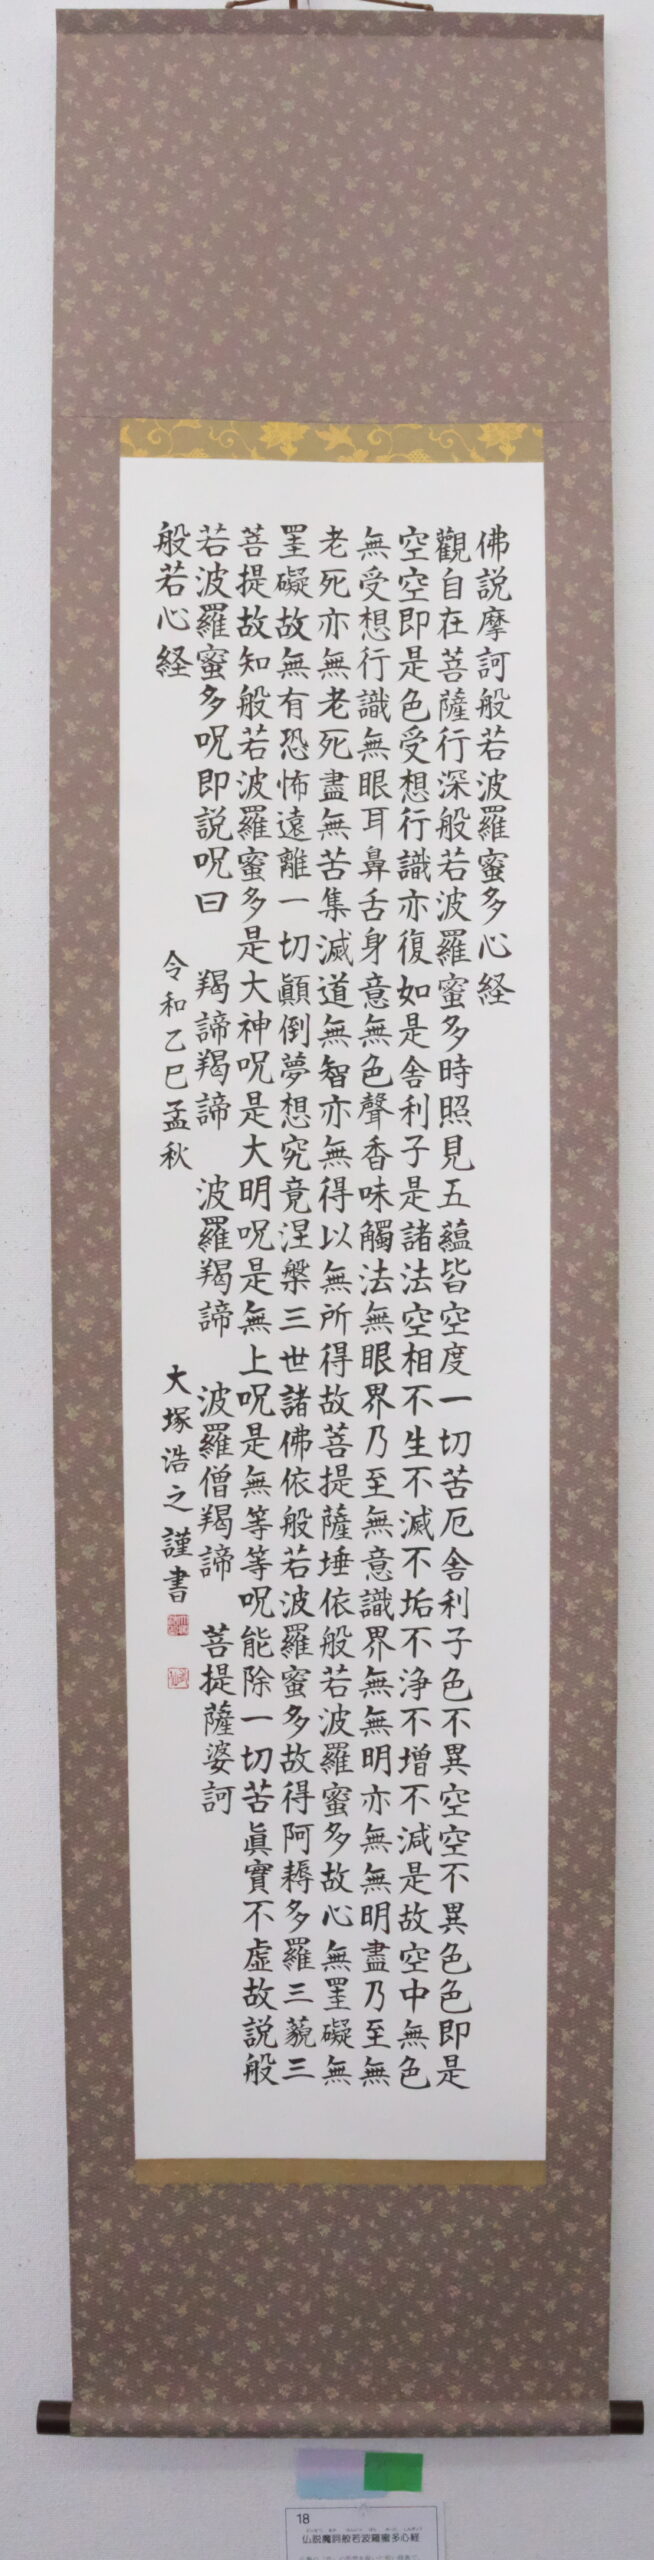 佛説摩訶般若波羅蜜多心経
觀自在菩薩行深般若波羅蜜多時照見五蘊皆空度一切苦厄舎利子色不異空空不異色色即是
空空即是色受想行識亦復如是舎利子是諸法空相不生不滅不垢不浄不増不減是故空中無色
無受想行識無眼耳鼻舌身意無色聲香味觸法無眼界乃至無意識界無無明亦無無明盡乃至無
老死亦無老死盡無苦集滅道無智亦無得以無所得故菩提薩埵依般若波羅蜜多故心無罣礙無
罣礙故無有恐怖遠離一切顚倒夢想究竟涅槃三世諸佛依般若波羅蜜多故得阿耨多羅三藐三
菩提故知般若波羅蜜多是大神呪是大明呪是無上呪是無等等呪能除一切苦眞實不虚故説般
若波羅蜜多呪即説呪曰 羯諦羯諦 波羅羯諦 波羅僧羯諦 菩提薩婆訶
般若心経
令和乙巳孟秋 大塚浩之謹書
18
仏説魔訶般若波羅蜜多心経